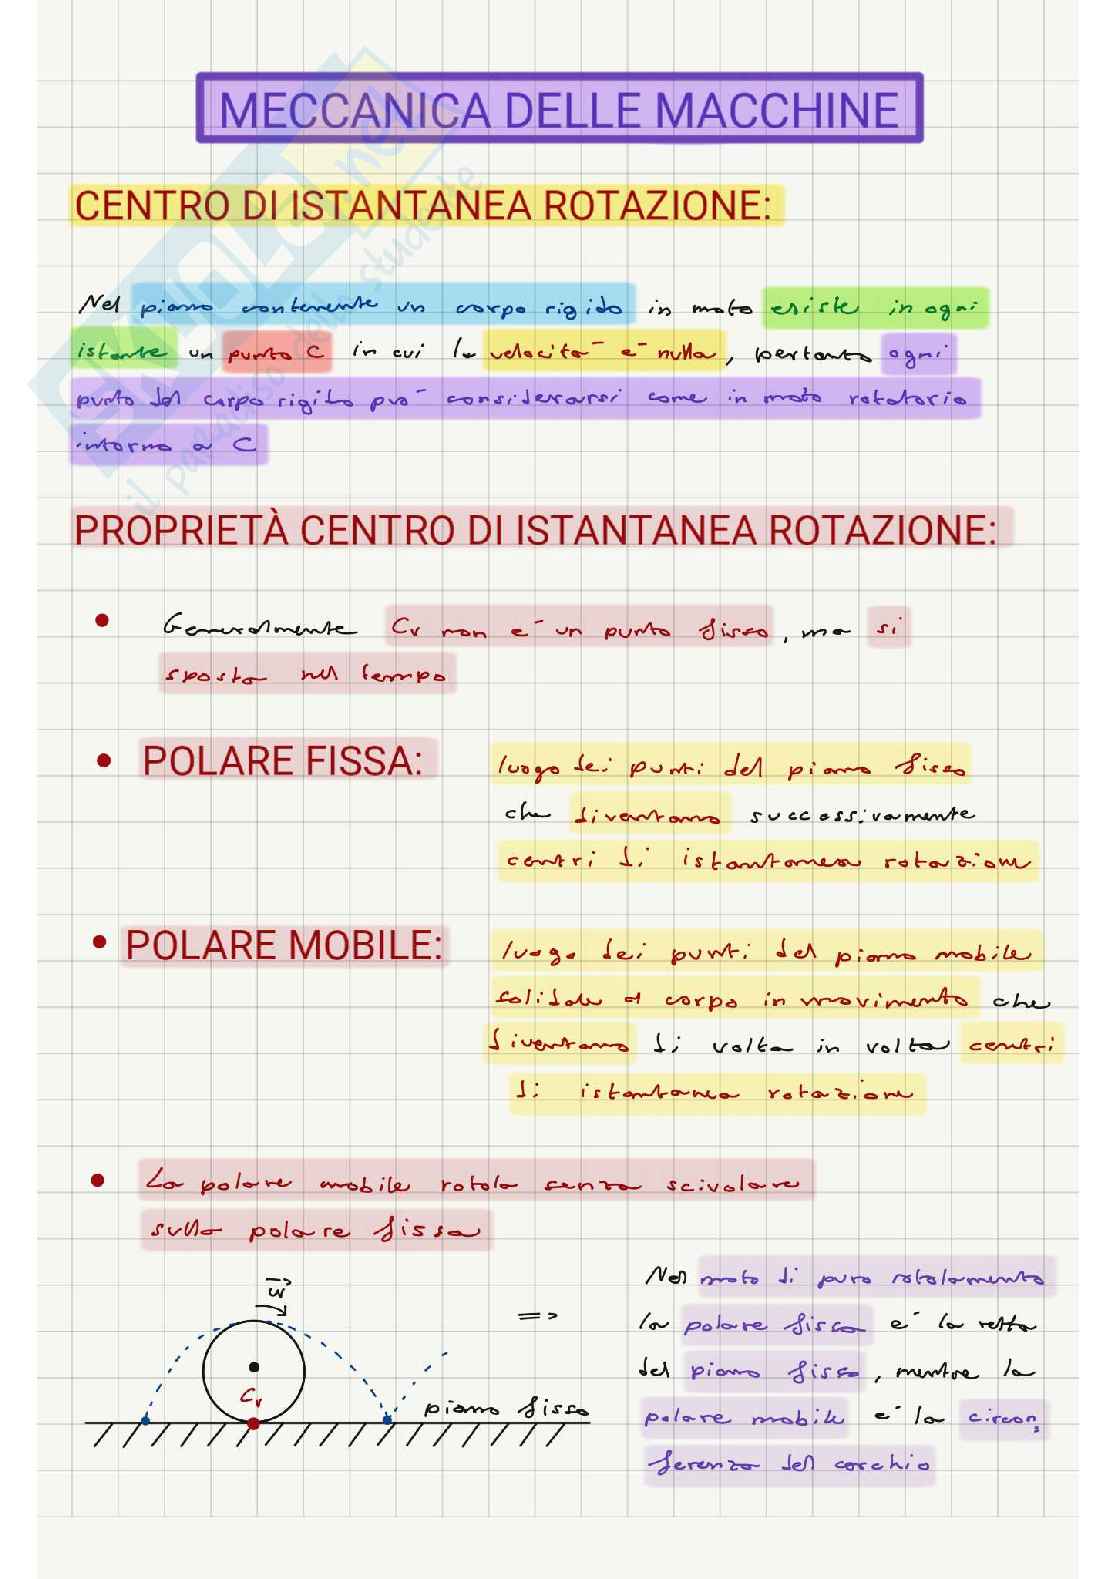 MECCANICA DELLE MACCHINE
CENTRO DI ISTANTANEA ROTAZIONE:
Nel piano contenente un corpo rigido in moto esiste in ogni
istante un punto C in cui la velocità è nulla, pertanto ogni
punto del corpo rigido può considerarsi come in moto rotatorio
intorno a C
PROPRIETÀ CENTRO DI ISTANTANEA ROTAZIONE:
• Generalmente Cv non è un punto fisso, ma si
sposta nel tempo
• POLARE FISSA: luogo dei punti del piano fisso
che diventano successivamente
centri di istantanea rotazione
• POLARE MOBILE: luogo dei punti del piano mobile
solidale al corpo in movimento che
diventano di volta in volta centri
di istantanea rotazione
• La polare mobile rotola senza scivolare
sulla polare fissa
w
Cv
piano fisso
=>
Nel moto di puro rotolamento
la polare fissa è la retta
del piano fisso, mentre la
polare mobile è la circon,
ferenza del cerchio
il paradiso dello studente